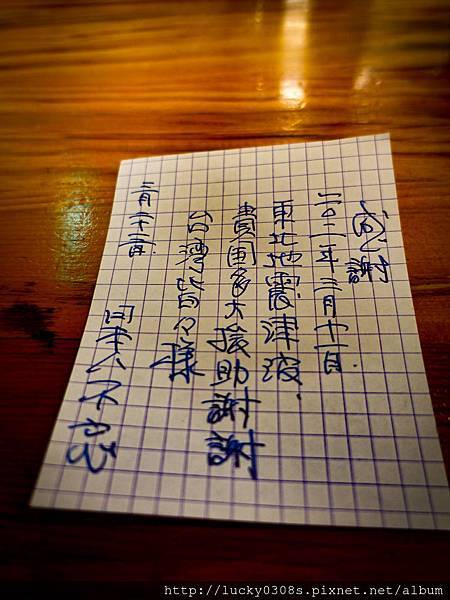 感謝
二〇一一年三月十一日
東北地震津波
貴国多大援助謝謝
台湾皆々様
日本人
http://lucky0308s.pixnet.net/album